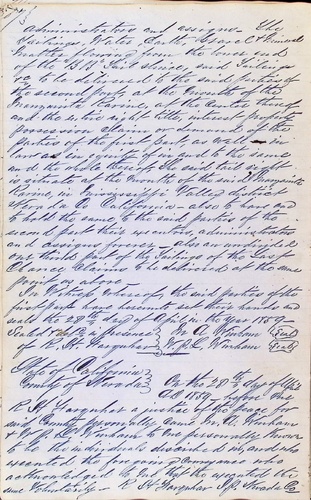 administrators and assigns - The
Tailings, Water, Earth, Gravel & Mineral
matter flowing from the lower end
of the said Sluice, said Tailings
to be delivered to the said parties of
the second part, at the mouth of the
Manzanita Ravine, at the center thereof
and the entire right, title, interest, property
possession claim or demand of the
parties of the first part, as well in
law as in equity of in and to the same
and the whole thereof, The said tail
situate at the mouth of the said Manzanita
Ravine, in Mississippi Valley district
Nevada Co California - also to have and
to hold the same to the said parties of the
second part their executors, administrators
and assigns forever - also an undivided
one third part of the Tailings of the Last
Chance Claims to be delivered at the same
point as above -
In Witness whereof, the said parties of the
first part have hereunto set their hands and
seals the 28th day of April in the year
Sealed & del'd in presence W. A. Winham Seal
of R. H. Farquhar W. L. Winham Seal
State of California
County of Nevada On the 28th day of April
A.D. 1859 before me
R. H. Farquhar a justice of the peace for
said County personally came W. A. Winham
& L. Winham to me personally known
to be the individuals described in, and who
executed the foregoing conveyance who
acknowledged to me that they executed the
same voluntarily - R. H. Farquhar J.P. Nevada Co